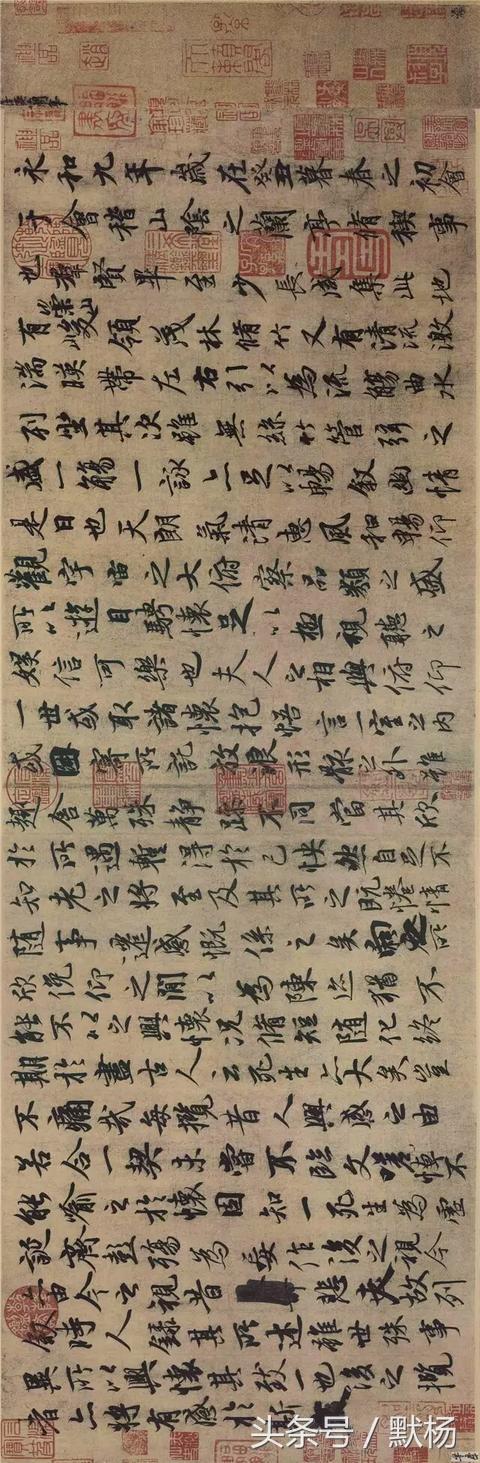 永和九年歲在癸丑暮春之初會
于會稽山陰之蘭亭脩禊事
也羣賢畢至少長咸集此地
有崇山峻領茂林脩竹又有清流激
湍暎帶左右引以為流觴曲水
列坐其次雖無絲竹管弦之
盛一觴一詠亦足以暢敘幽情
是日也天朗氣清惠風和暢仰
觀宇宙之大俯察品類之盛
所以遊目騁懷足以極視聽之
娛信可樂也夫人之相與俯仰
一世或取諸懷抱悟言一室之內
或因寄所託放浪形骸之外雖
趣舍萬殊靜躁不同當其欣
於所遇蹔得於己怏然自足不
知老之將至及其所之既惓情
隨事遷感慨係之矣向之所
欣俛仰之閒以為陳迹猶不
能不以之興懷況脩短隨化終
期於盡古人云死生亦大矣豈
不痛哉每攬昔人興感之由
若合一契未嘗不臨文嗟悼不
能喻之於懷固知一死生為虛
誕齊彭殤為妄作後之視今
亦由今之視昔悲夫故列
敘時人錄其所述雖世殊事
異所以興懷其致一也後之攬
者亦將有感於斯
头条号 / 默杨